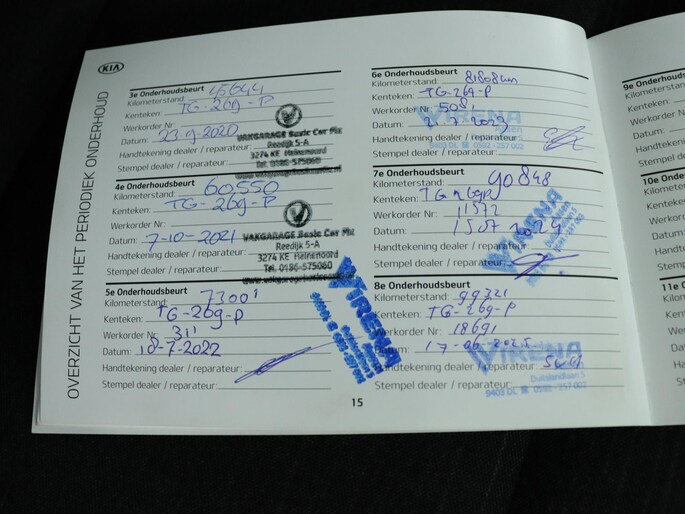 KIA
OVERZICHT VAN HET PERIODIEK ONDERHOUD
3e Onderhoudsbeurt
Kilometerstand: 45644
Kenteken: TG-269-P
Werkorder Nr:
Datum: 23-9-2020
Handtekening dealer / reparateur:
Stempel dealer / reparateur:
VAKGARAGE Basic Car Mix
Reedijk 5-A
3274 KE Heinenoord
Tel. 0186-575060
4e Onderhoudsbeurt
Kilometerstand: 60550
Kenteken: TG-269-P
Werkorder Nr:
Datum: 7-10-2021
Handtekening dealer / reparateur:
Stempel dealer / reparateur:
VAKGARAGE Basic Car Mix
Reedijk 5-A
3274 KE Heinenoord
Tel. 0186-575060
5e Onderhoudsbeurt
Kilometerstand: 73001
Kenteken: TG-269-P
Werkorder Nr: 311
Datum: 18-7-2022
Handtekening dealer / reparateur:
Stempel dealer / reparateur:
WIRENA
6e Onderhoudsbeurt
Kilometerstand: 81808 km
Kenteken: TG-269-P
Werkorder Nr: 5081
Datum: 2-7-2023
Handtekening dealer / reparateur:
Stempel dealer / reparateur:
WIRENA
9403 DL ☎ 0592-257 002
7e Onderhoudsbeurt
Kilometerstand: 90848
Kenteken: TG 269P
Werkorder Nr: 11572
Datum: 1507 2024
Handtekening dealer / reparateur:
Stempel dealer / reparateur:
WIRENA
8e Onderhoudsbeurt
Kilometerstand: 99321
Kenteken: TG-269-P
Werkorder Nr: 18691
Datum: 17-06-2025
Handtekening dealer / reparateur:
Stempel dealer / reparateur:
WIRENA
Duitslandlaan 5
9403 DL ☎ 0592-257 002
15
9e Onderhoud
Kilometerstan
Kenteken:
Werkorder N
Datum:
Handteken
Stempel d
10e Onde
Kilomete
Kenteke
Werkor
Datum
Handt
Stem
11e O
Kilo
Ken
We
Da
Ha
St